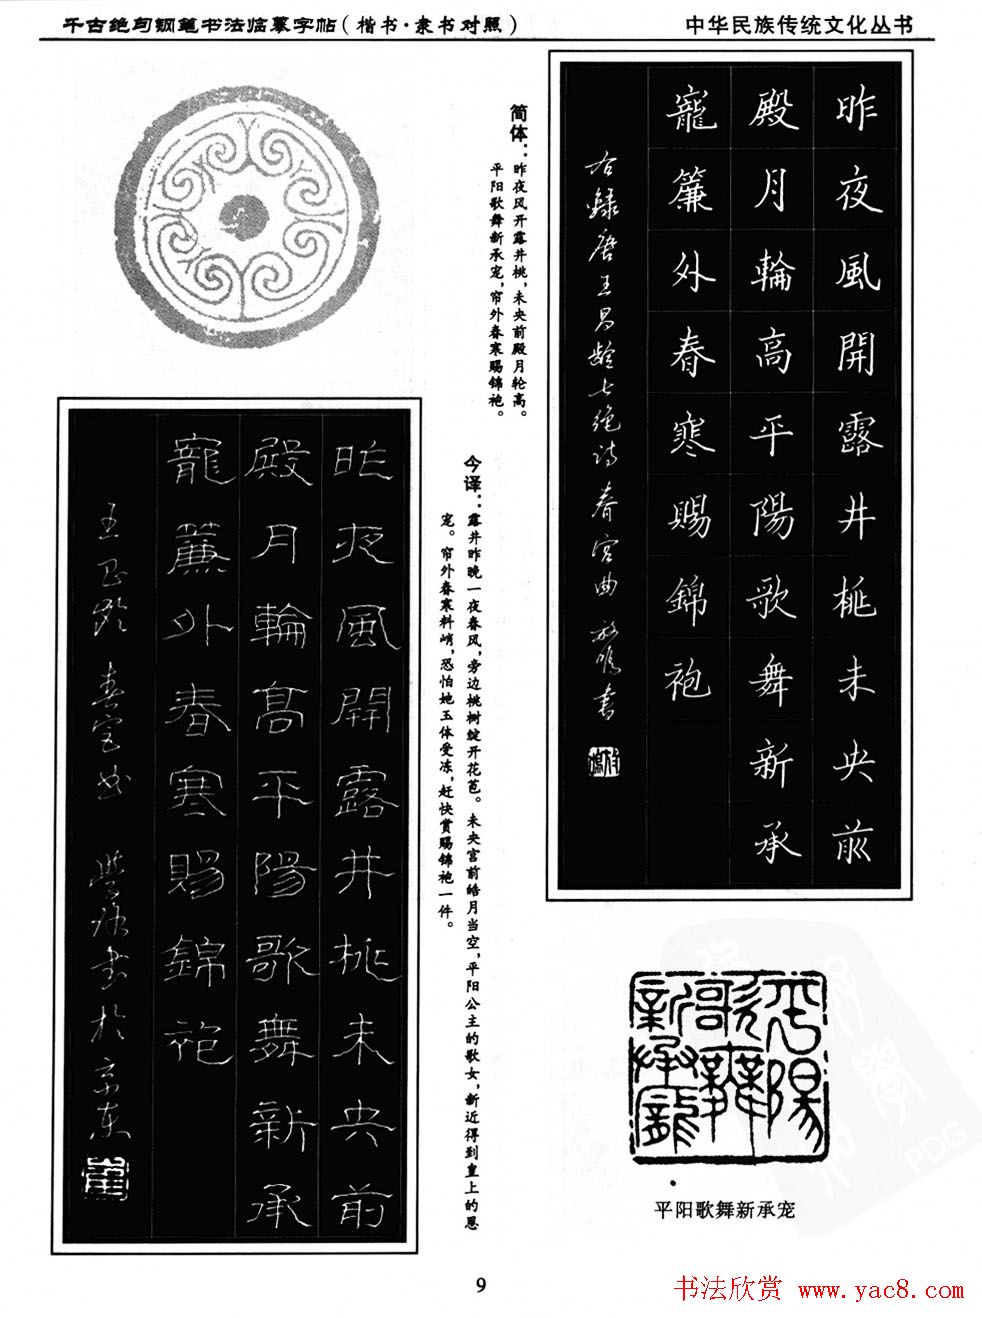 千古绝句钢笔书法临摹字帖（楷书·隶书对照）
中华民族传统文化丛书
昨夜風開露井桃未央前
殿月輪高平陽歌舞新承
寵簾外春寒賜錦袍
右録唐王昌齡七绝诗春宫曲
书
简体：昨夜风开露井桃，未央前殿月轮高。
平阳歌舞新承宠，帘外春寒赐锦袍。
今译：露井昨晚一夜春风，旁边桃树绽开花苞。未央宫前皓月当空，平阳公主的歌女，新近得到皇上的恩
宠。帘外春寒料峭，恐怕她玉体受冻，赶快赏赐锦袍一件。
昨夜風開露井桃未央前
殿月輪高平陽歌舞新承
寵簾外春寒賜錦袍
王昌龄 春宫曲
书于京东
平陽歌舞新承寵
平阳歌舞新承宠
PDG
9
书法欣赏 www.yac8.com